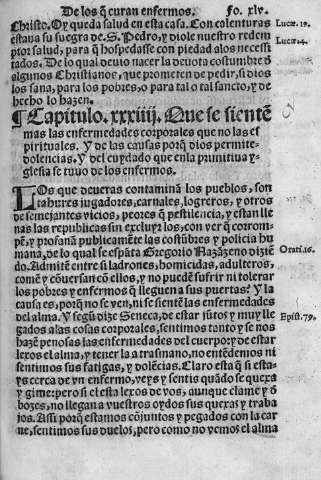 De los q̃ curan enfermos. fo. xlv.
Christo. Oy queda salud en esta casa. Con calenturas Lucæ.19.
estaua su suegra de .S. Pedro, y diole nuestro redem
ptor salud, para q̃ hospedasse con piedad alos necessi Lucæ.4.
tados. De lo qual deuio nacer la deuota costumbre ď
algunos Christianos, que prometen de pedir, si dios
los sana, para los pobres, o para tal o tal sancto, y de
hecho lo hazen.
¶ Capitulo. xxxiiij. Que se sientẽ
mas las enfermedades corporales que no las es
pirituales. Y de las causas porq̃ dios permite
dolencias. Y del cuydado que enla primitiua y-
glesia se tuuo de los enfermos.
LOs que deueras contaminã los pueblos, son
tahures jugadores, carnales, logreros, y otros
de semejantes vicios, peores q̃ pestilencia, y estan lle
nas las republicas sin excluyr los, con ver q̃ corrom-
pẽ, y profanã publicamẽte las costũbres y policia hu
mana, de lo qual se espãta Gregorio Nazãzeno dizie͂ Orati.16.
do. Admitẽ entre si ladrones, homicidas, adulteros,
comẽ y cõuersan cõ ellos, y no puedẽ sufrir ni tolerar
los pobres y enfermos q̃ lleguen a sus puertas? Y la
causa es, porq̃ no se vẽn, ni se sientẽ las enfermedades
del alma. Y segũ dize Seneca, de estar jũtos y muy lle Epist.79.
gados alas cosas corporales, sentimos tanto y se nos
hazẽ penosas las enfermedades del cuerpo: y de estar
lexos el alma, y tener la a trasmano, no entẽdemos ni
sentimos sus fatigas, y dolẽcias. Claro esta q̃ si esta-
ys cerca de vn enfermo, veys y sentis quãdo se quexa
y gime: pero si el esta lexos de vos, aunque clame y ď
bozes, no llegan a vuestros oydos sus quexas y traba
jos. Assi porq̃ estamos cõjuntos y pegados con la car
ne, sentimos sus duelos, pero como no vemos el alma